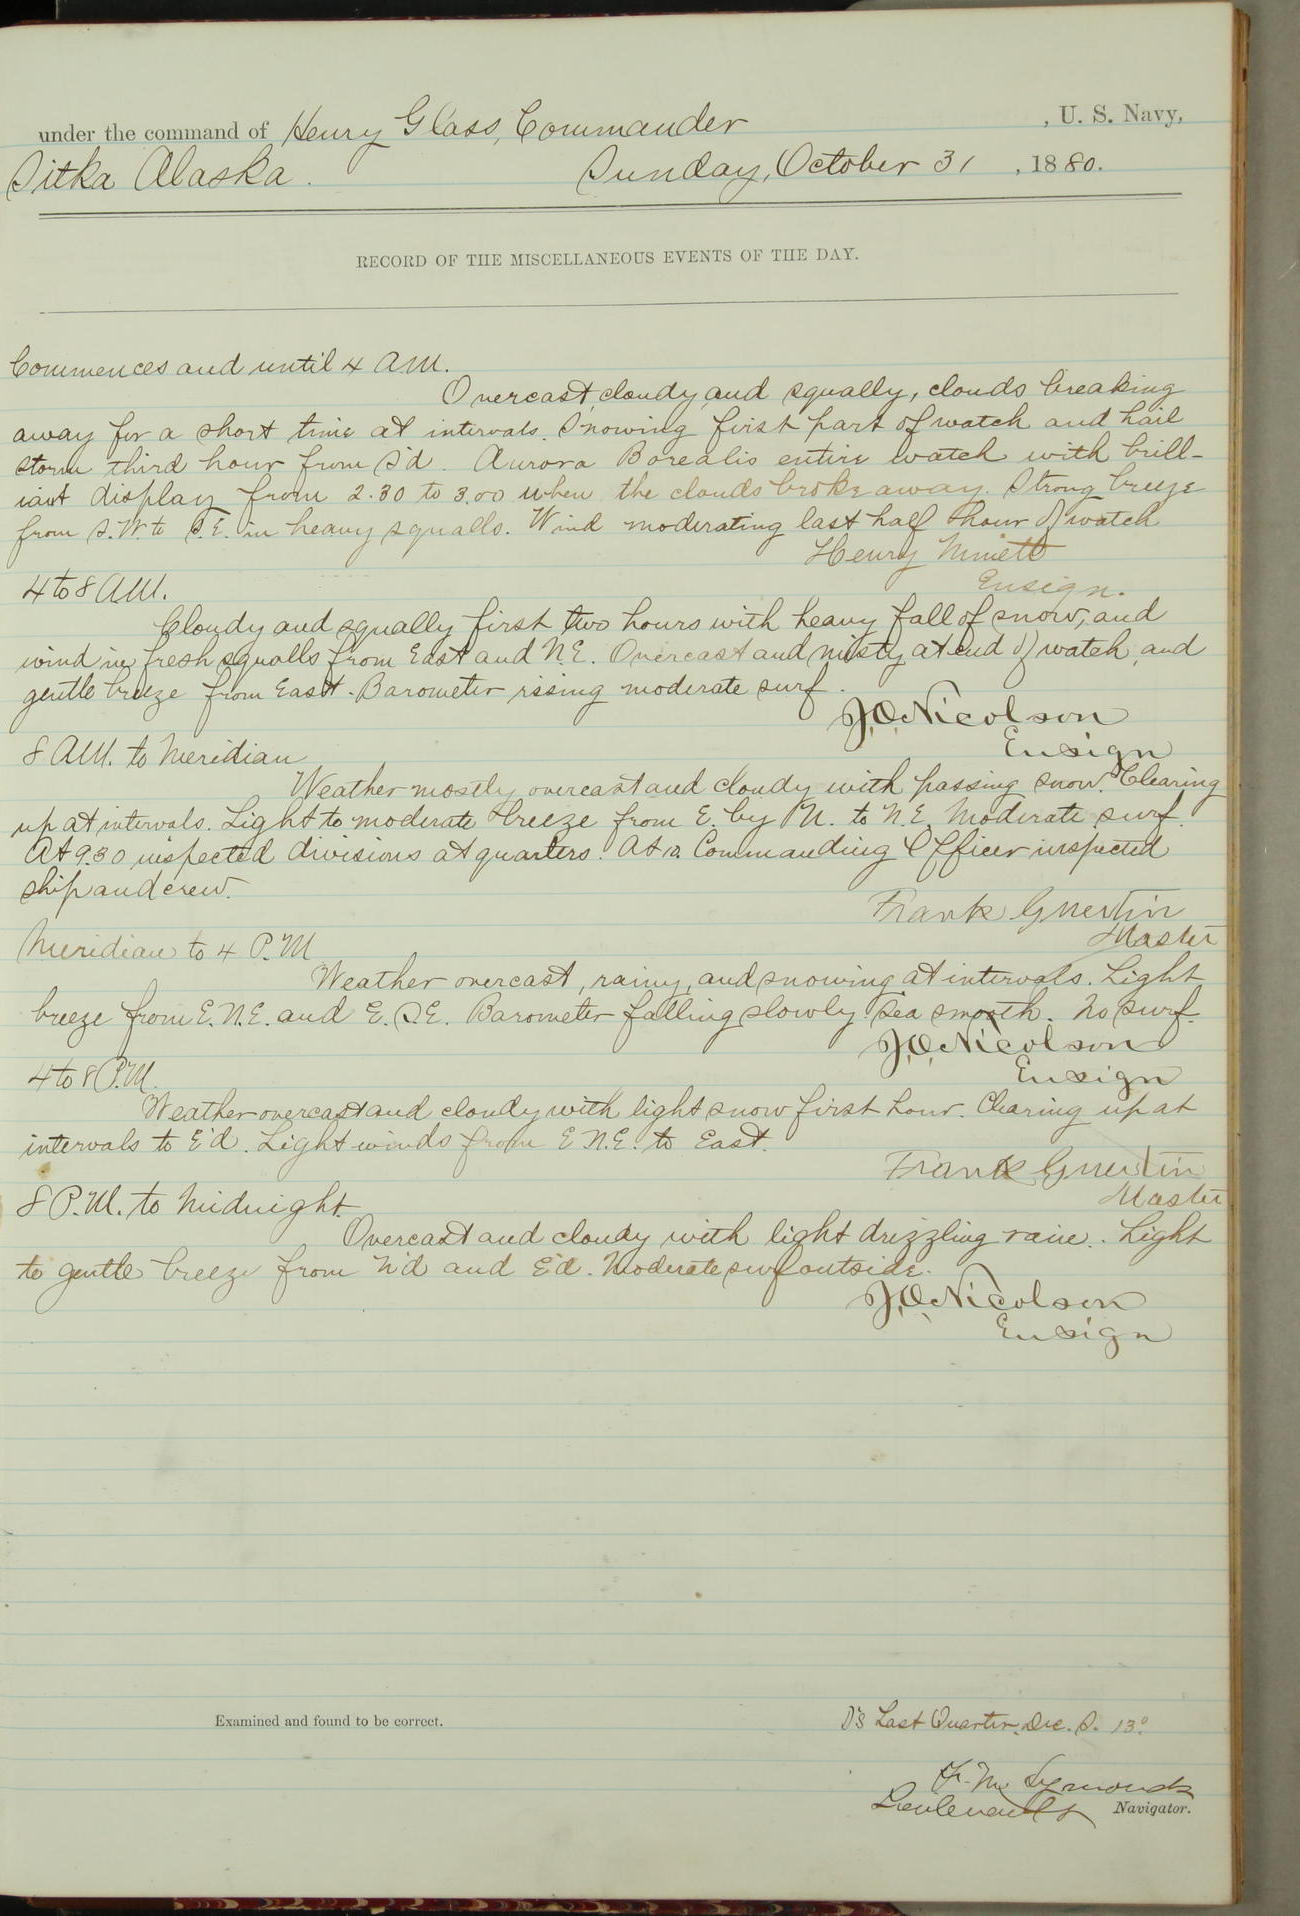 under the command of Henry Glass, Commander , U. S. Navy,
Sitka Alaska. Sunday, October 31 , 1880.
RECORD OF THE MISCELLANEOUS EVENTS OF THE DAY.
Commences and until 4 A.M.
Overcast, cloudy and squally, clouds breaking
away for a short time at intervals. Snowing first part of watch and hail
storm third hour from S'd. Aurora Borealis entire watch with brill-
iant display from 2.30 to 3.00 when the clouds broke away. Strong breeze
from S.W. to S.E. in heavy squalls. Wind moderating last half hour of watch
Henry Minett
Ensign.
4 to 8 A.M.
Cloudy and squally first two hours with heavy fall of snow, and
wind in fresh squalls from East and N.E. Overcast and misty at end of watch, and
gentle breeze from East. Barometer rising moderate surf.
J.O. Nicolson
Ensign
8 A.M. to Meridian
Weather mostly overcast and cloudy with passing snow. Clearing
up at intervals. Light to moderate breeze from E. by N. to N.E. Moderate surf.
At 9.30 inspected divisions at quarters. At 10. Commanding Officer inspected
ship and crew.
Frank Guertin
Master
Meridian to 4 P.M
Weather overcast, rainy, and snowing at intervals. Light
breeze from E.N.E. and E.S.E. Barometer falling slowly. Sea smooth. No surf.
J.O. Nicolson
Ensign
4 to 8 P.M.
Weather overcast and cloudy with light snow first hour. Clearing up at
intervals to E'd. Light winds from E.N.E. to East.
Frank Guertin
Master
8 P.M. to Midnight.
Overcast and cloudy with light drizzling rain. Light
to gentle breeze from N'd and E'd. Moderate surf outside.
J.O. Nicolson
Ensign
Examined and found to be correct.
☽'s Last Quarter, Dec. S. 13°
F. M. Symonds
Lieutenant Navigator.